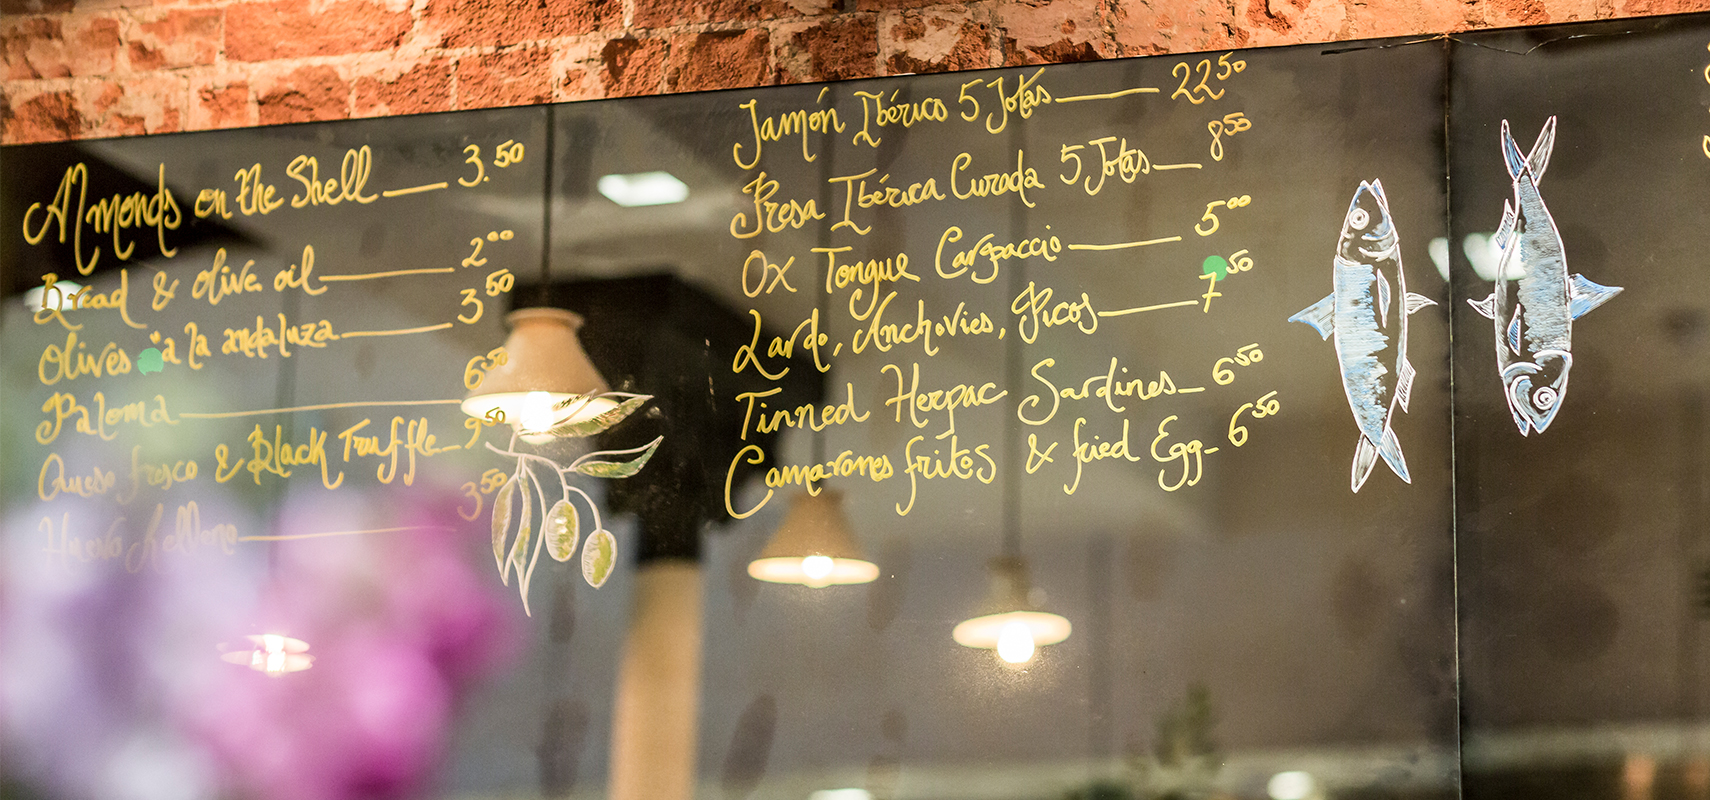 Almonds on the Shell — 3.50
Bread & olive oil — 2⁰⁰
Olives "a la andaluza — 3⁵⁰
Paloma — 6⁵⁰
Queso fresco & Black Truffle — 9⁵⁰
Huevo Relleno — 3⁵⁰
Jamón Ibérico 5 Jotas — 22⁵⁰
Presa Ibérica Curada 5 Jotas — 8⁵⁰
Ox Tongue Carpaccio — 5⁰⁰
Lardo, Anchovies, Picos — 7⁵⁰
Tinned Herpac Sardines — 6⁵⁰
Camarones fritos & fried Egg — 6⁵⁰